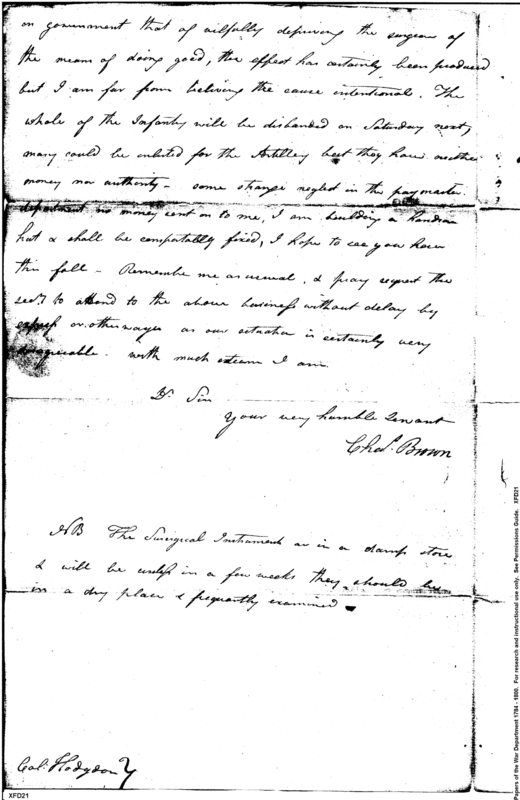 on government that of wilfully depriving the surgeon of
the means of doing good, the effect has certainly been produced
but I am far from believing the cause intentional. The
whole of the Infantry will be disbanded on Saturday next,
many could be enlisted for the Artillery but they have neither
money nor authority - some strange neglect in the paymaster
department no money sent on to me, I am building a handsom
hut & shall be comfortably fixed, I hope to see you here
this fall - Remember me as usual, & pray request the
Secy to attend to the above business without delay by
express or otherways as our situation is certainly very
disagreeable. With much esteem I am
Dr. Sir
your very humble Servant
Chas. Brown
NB The Surgical Instruments are in a damp store
& will be useless in a few weeks they should be
in a dry place & frequently examined
Col. Hodgdon
XFD21
Papers of the War Department 1784 - 1800. For research and instructional use only. See Permissions Guide. XFD21